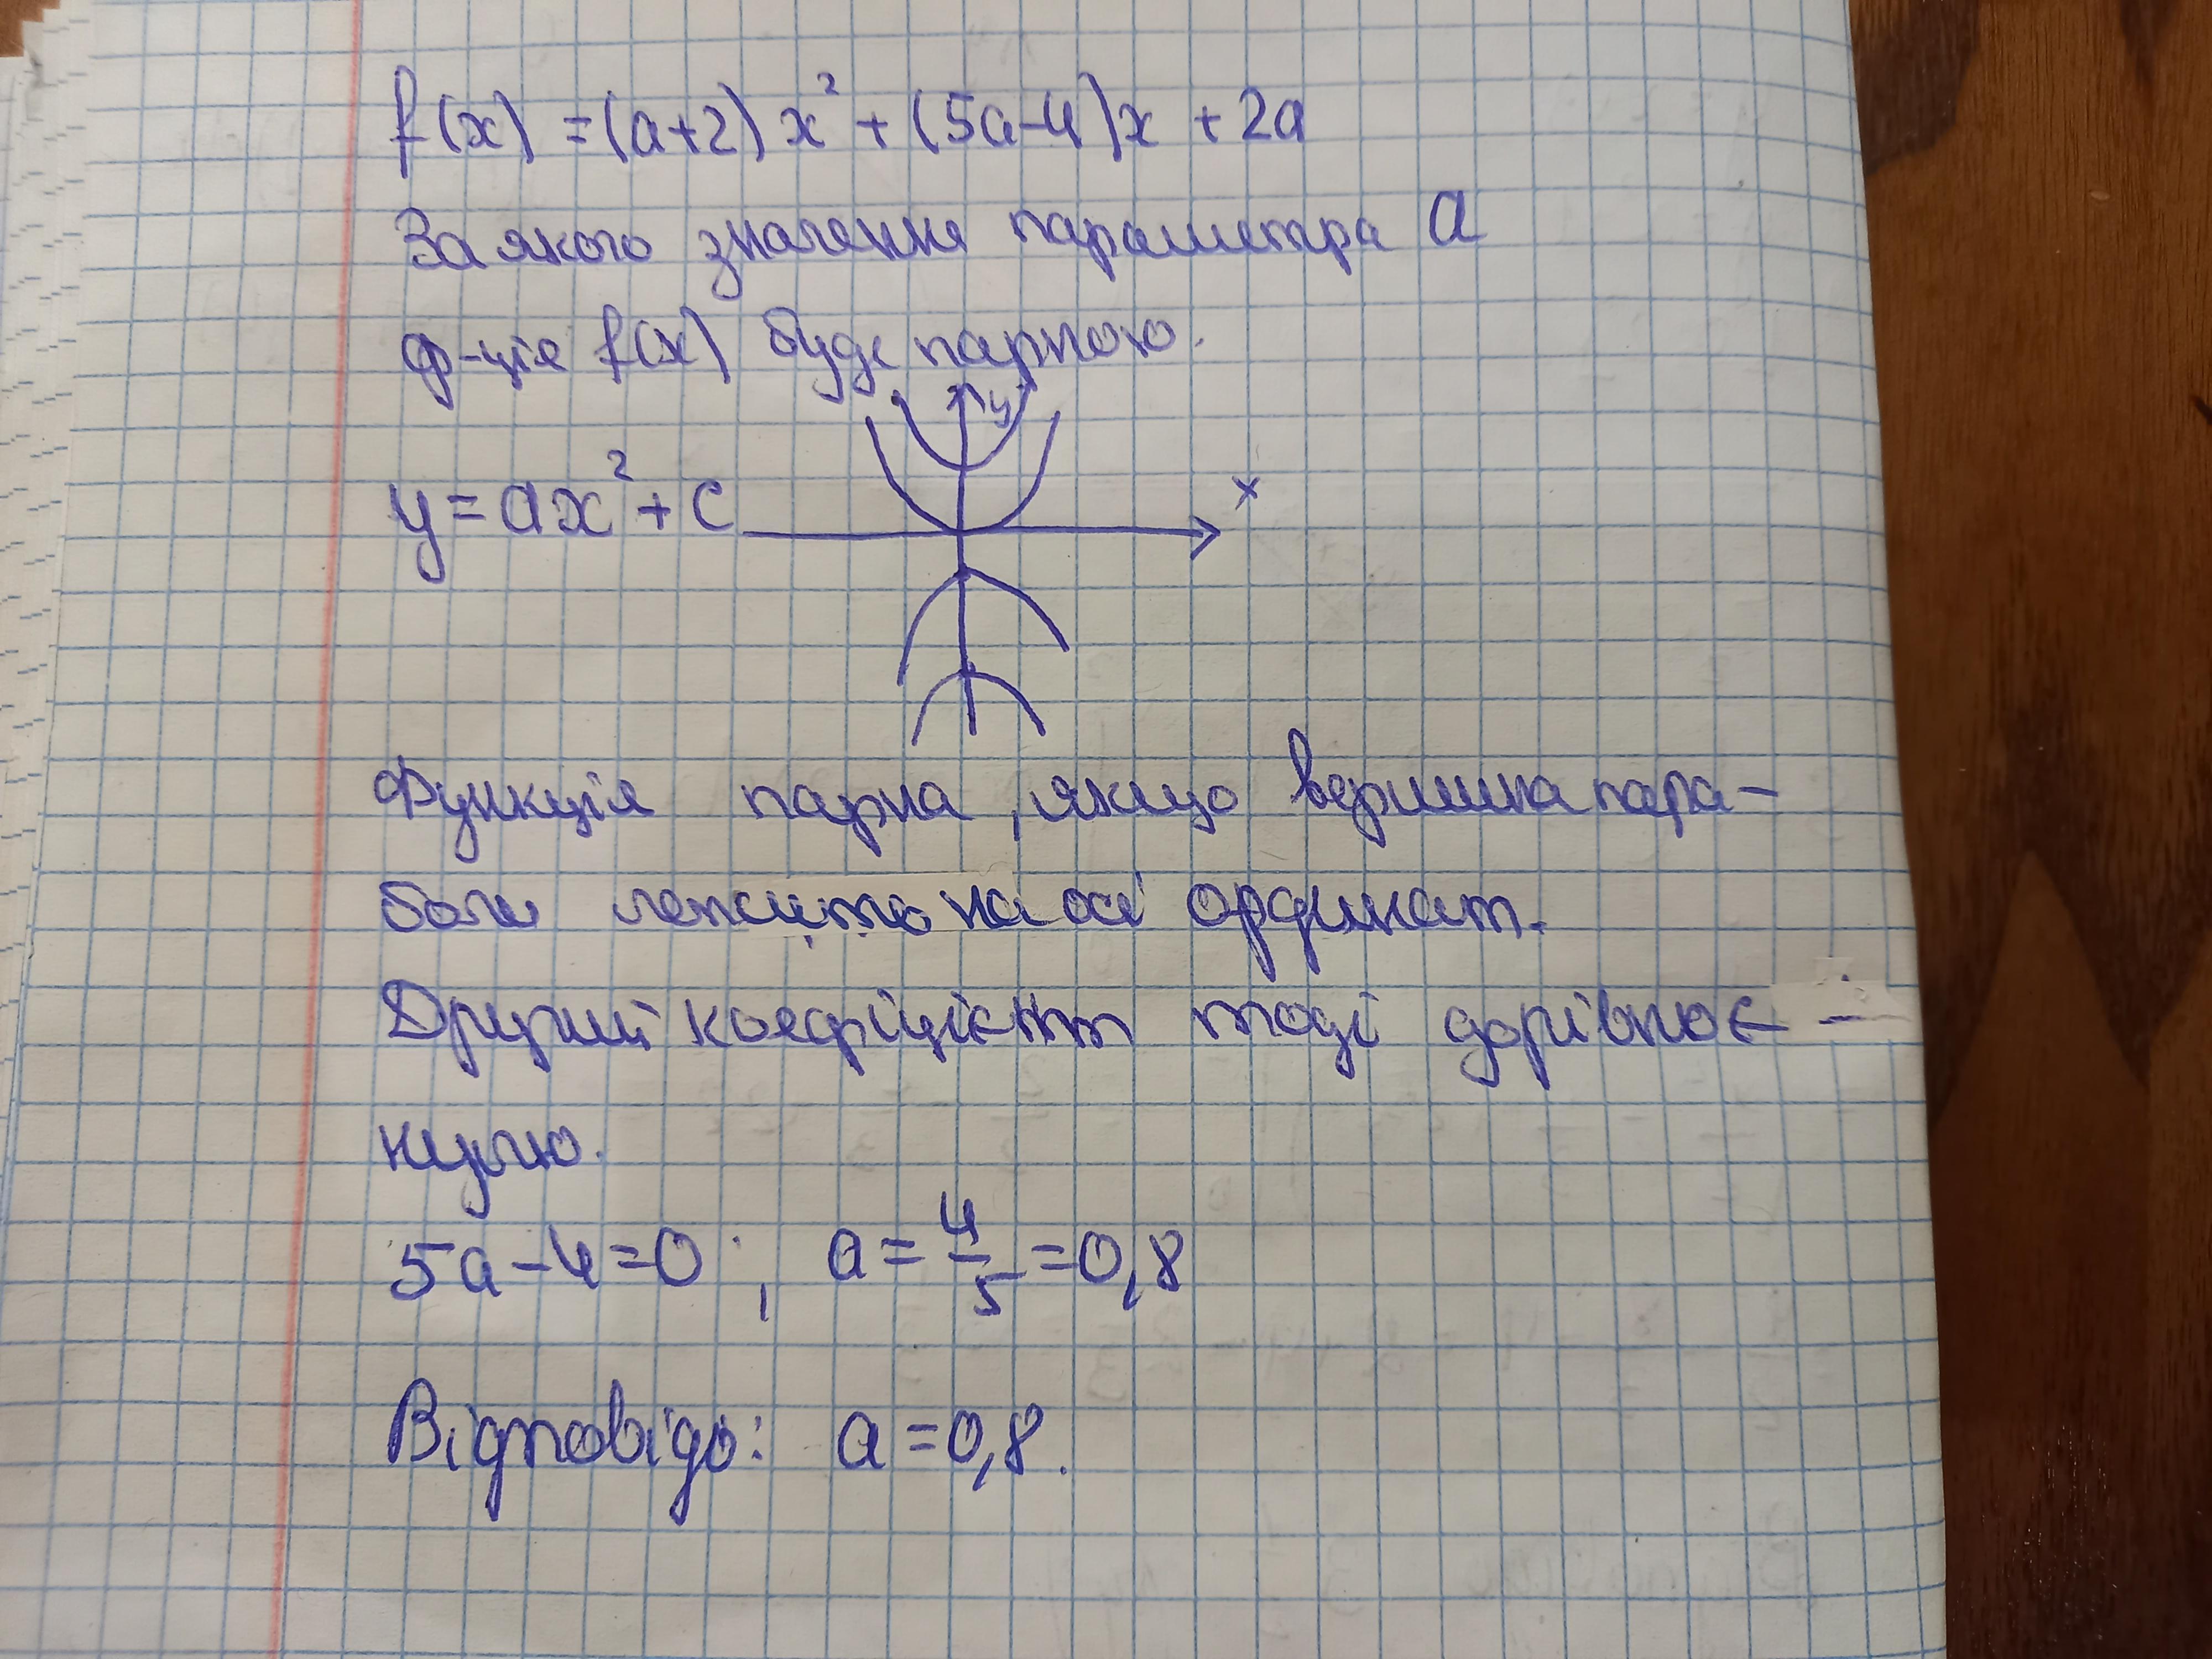 f(x) = (a+2)x² + (5a-4)x + 2a
За якого значення параметра a
ф-ція f(x) буде парною.
y
y = ax² + c
x
Функція парна, якщо вершина пара-
боли лежить на осі ординат.
Другий коефіцієнт тоді дорівнює -
нулю.
5a-4=0; a = 4/5 = 0,8
Відповідь: a = 0,8.